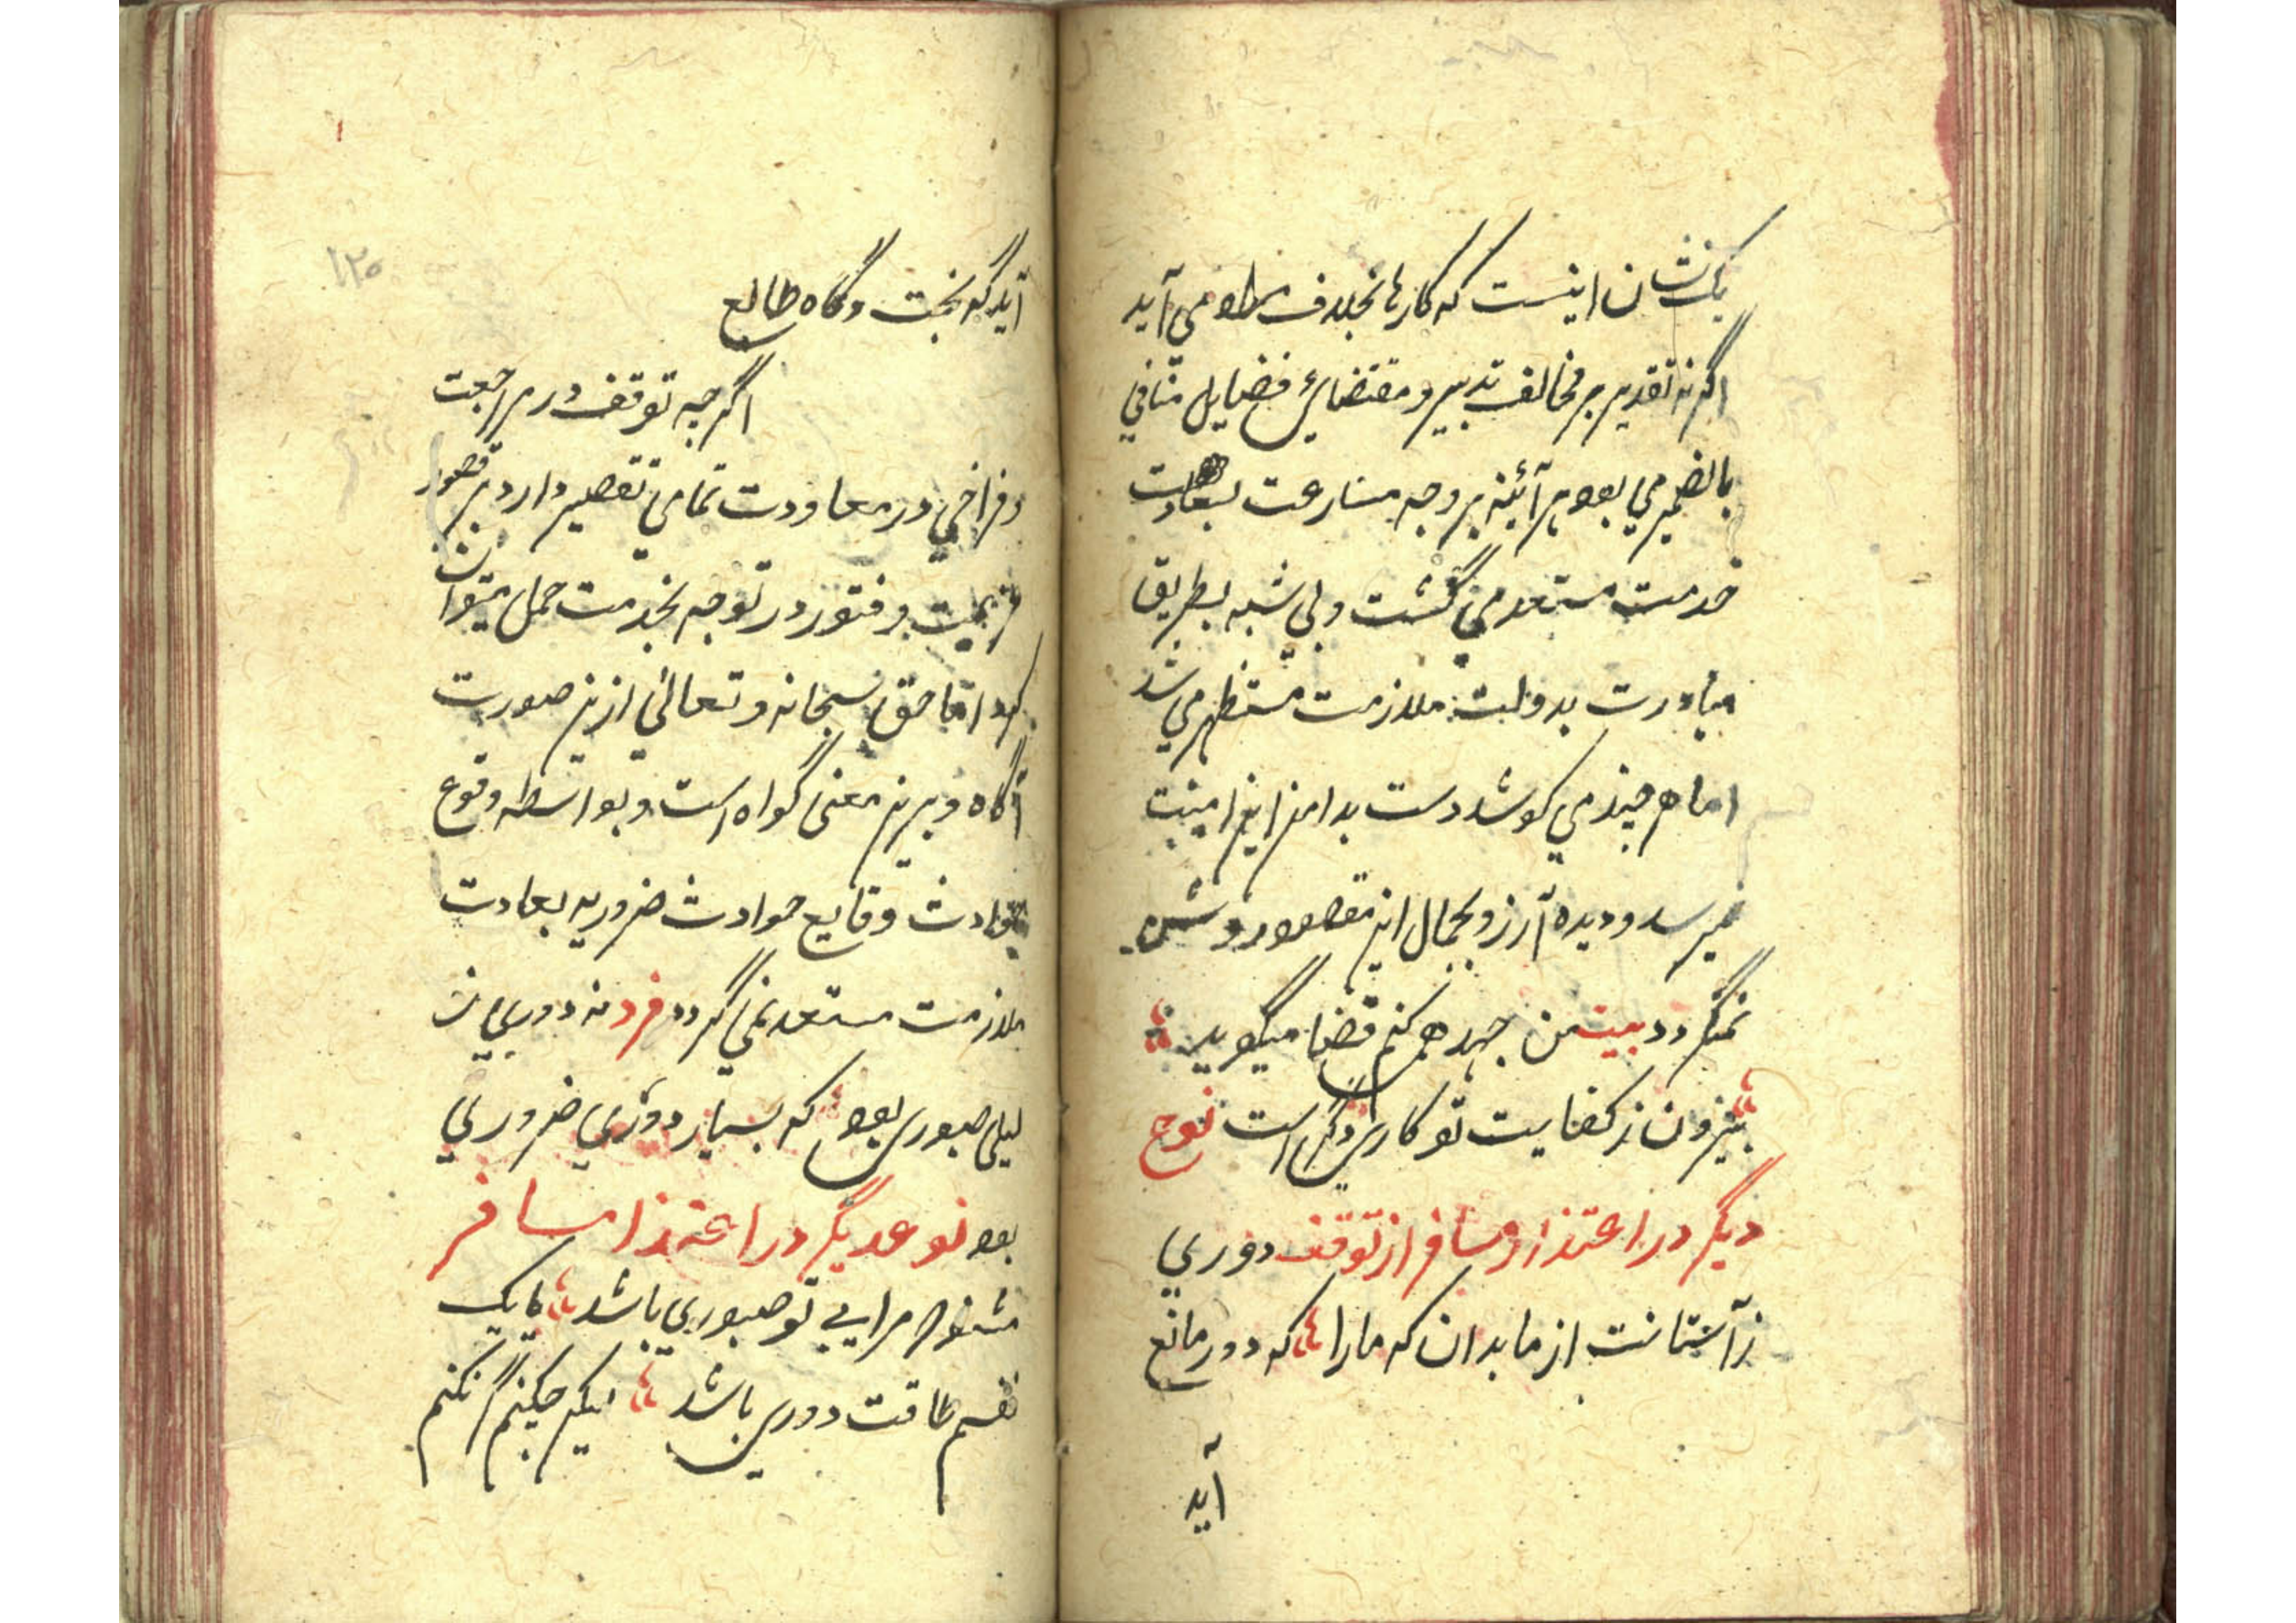 یک نشان اینست که کارها بخلاف مراد می آید
اگر نه تقدیر بر مخالف تدبیر و مقتضای فضایل منافی
ما بالضمیر می بود هر آئینه بر وجه مسارعت بسعادت
خدمت مستعد می گشت و بی شبه بطریق
مبادرت بدولت ملازمت مستظهر می شد
اما هر چند می کوشد دست بدامن این امنیت
نمیرسد و دیده آرزو بجمال این مقصود روشن
نمیگردد بیت من جهد همی کنم قضا میگوید
بیرون ز کفایت تو کاری دگر است نوع
دیگر در اعتذار مسافر از توقف دوری
ز آستانت از ما بدان که ما را که دور مانع
آید
۱۲۰
آید گه بخت و گاه طالع
اگرچه توقف در مراجعت
و فراخی در معاودت تمامی تقصیر دارد بر قصور
عزیمت و فتور در توجه بخدمت حمل میتوان
کرد اما حق سبحانه و تعالی ازین صورت
آگاه و برین معنی گواه است و بواسطه وقوع
حوادث وقایع حوادث ضروریه بعادت
ملازمت مستعد نمی گردد فرد نه دوری
صبوری بود که بسیار دوری ضروری
بود نوعدیگر در اعتذار مسافر
مشنو که مرا بی تو صبوری باشد یا یک
نفسم طاقت دوری باشد لیکن چکنم گر نکنم